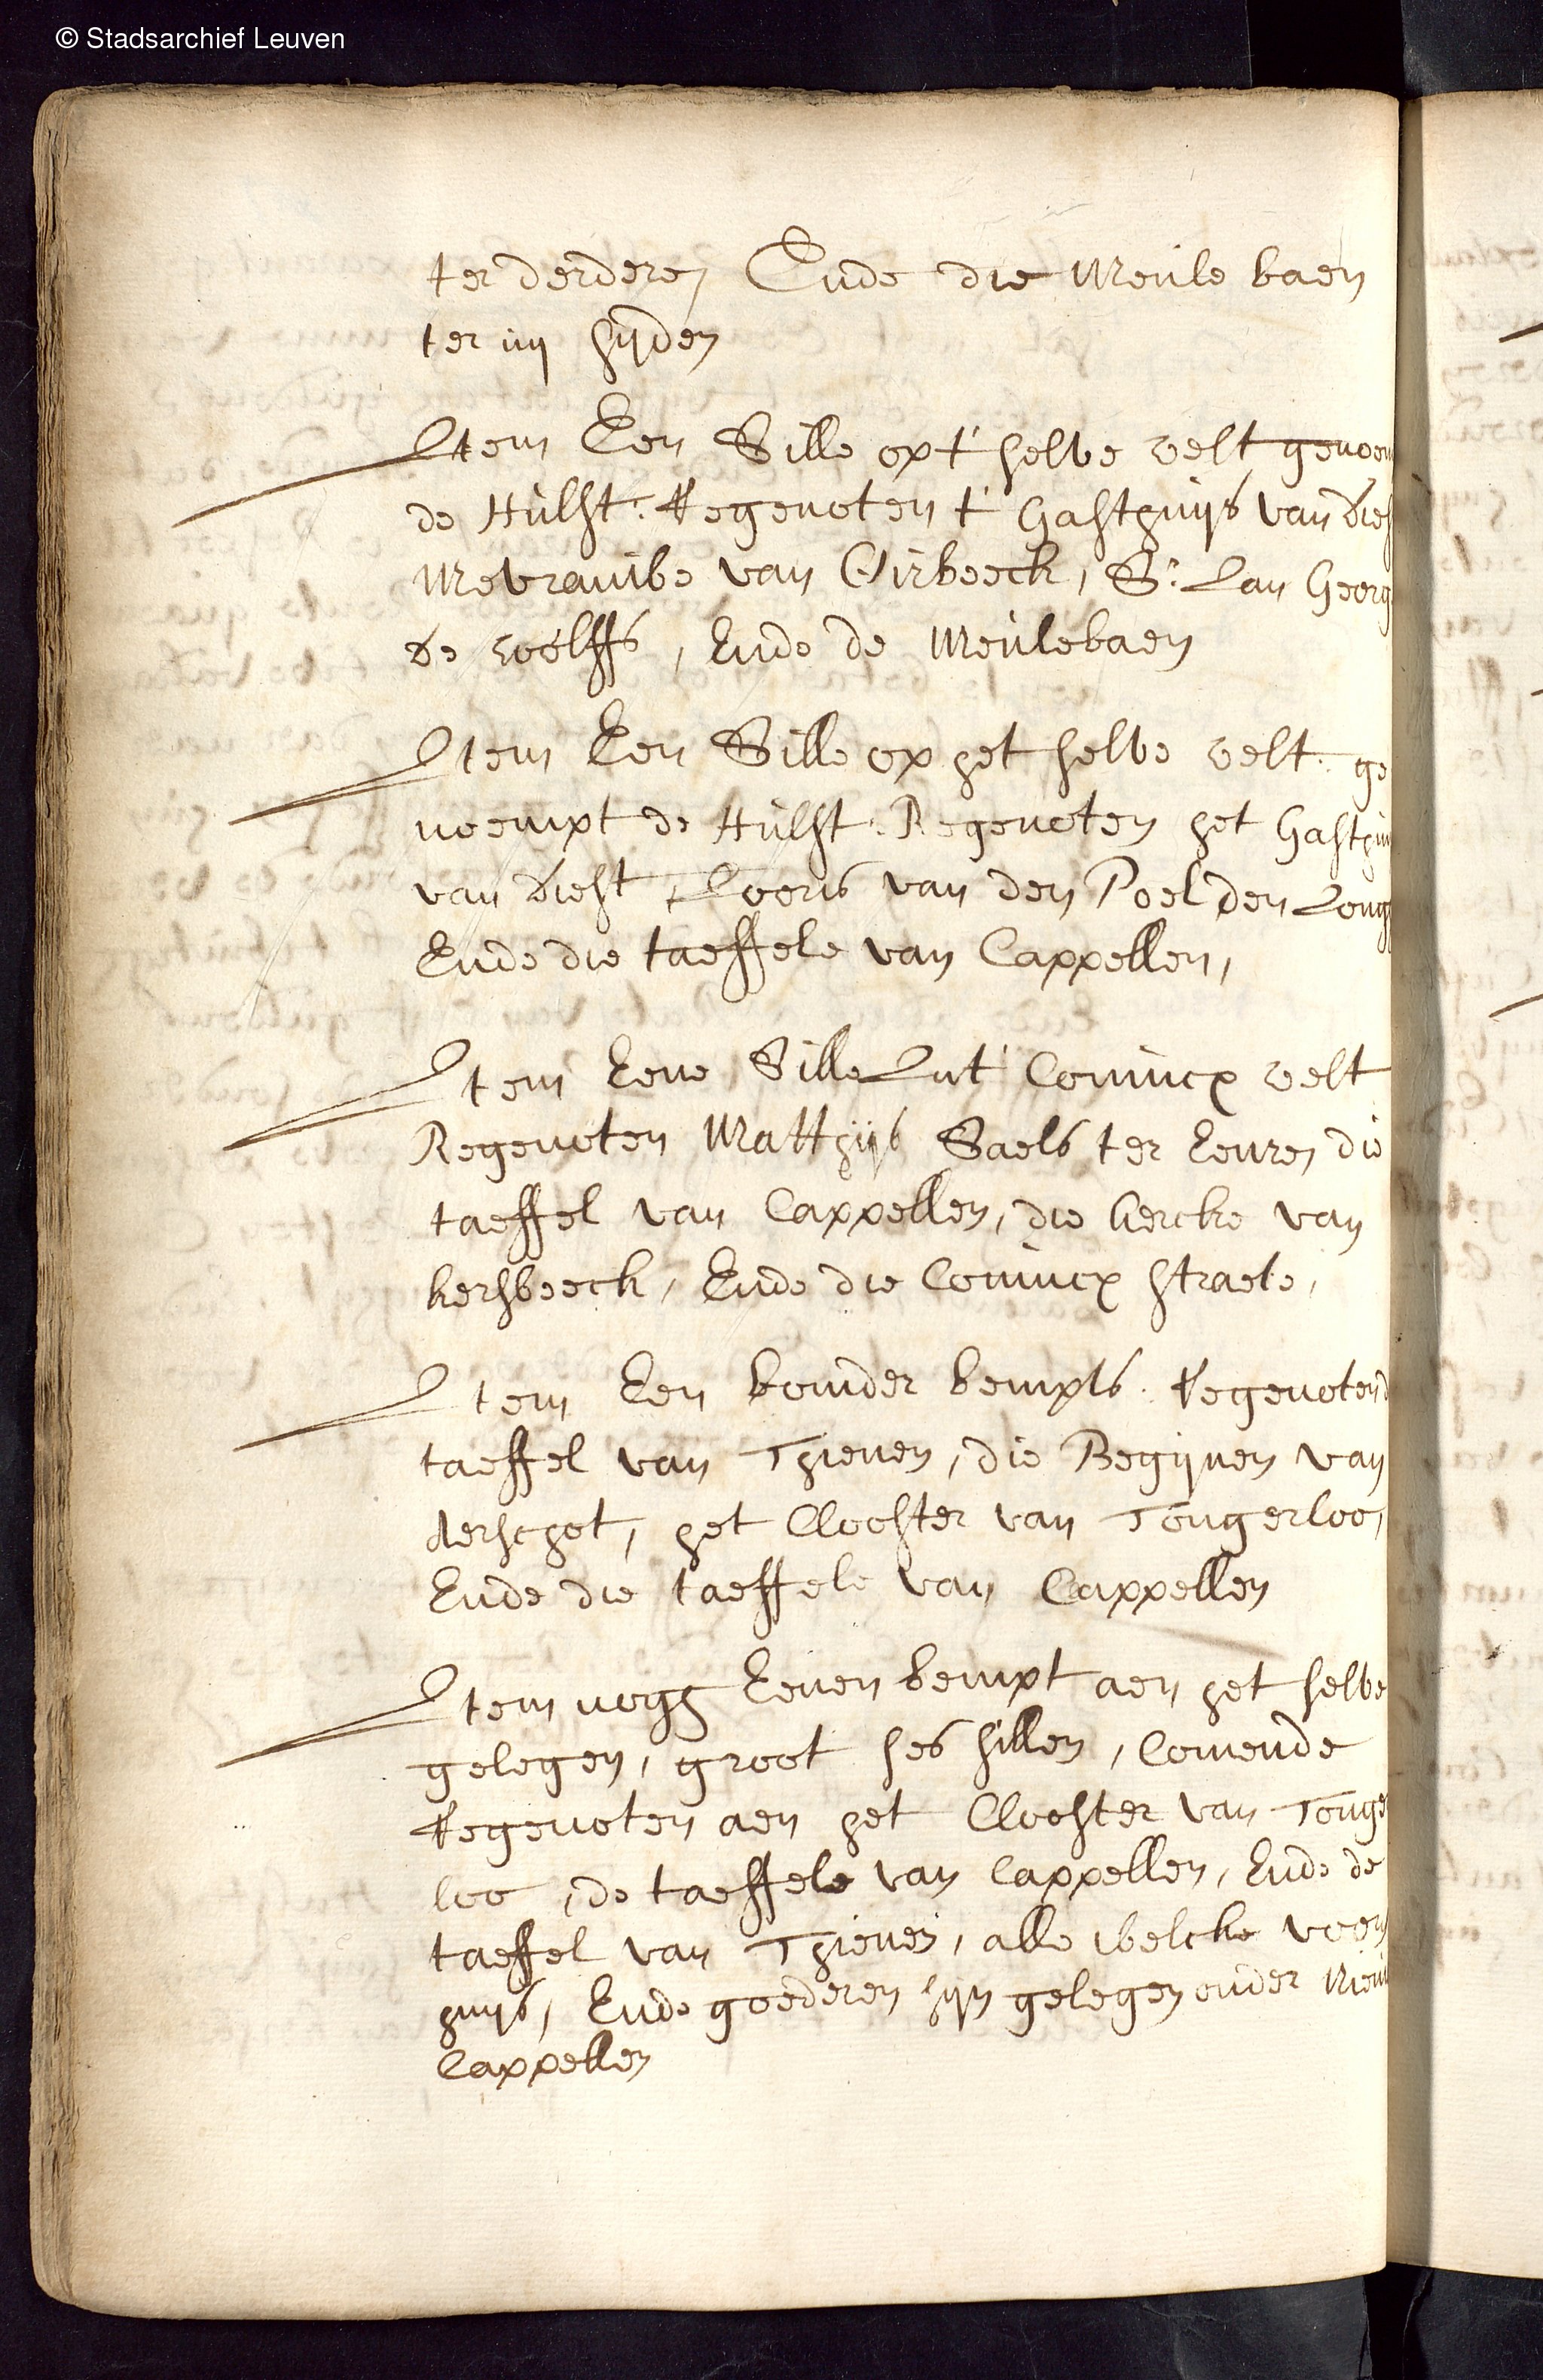 © Stadsarchief Leuven
ter derdere, Ende die Meule baen
ter iiij sijden
Item Een Sille op t' selve velt genoem
de Hulst. Regenoten t' Gasthuijs van dies
Mevrauwe van Cirbeeck, Sr. Jan Georg
de wolffs, Ende de Meulebaen
Item Een Sille op het selve velt. ge
noempt de Hulst. Regenoten het Gasthui
van diest, Joors van den Poel den Jong
Ende die taeffele van Cappellen,
Item Eene Sille Int' Conincx velt
Regenoten Matthijs Saels ter Eenre, die
taeffel van Cappellen, die kercke van
kersbeeck, Ende die Conincx straete,
Item Een bonder bempts. Regenoten d
taeffel van Thienen, die Begijnen van
Aerschot, het Clooster van Tongerloo,
Ende die taeffele van Cappellen
Item nogh Eenen bempt aen het selve
gelegen, groot ses sillen, Comende
Regenoten aen het Clooster van Tonge
loo, de taeffele van Cappellen, Ende de
taeffel van Thienen, alle welcke voors
huijs, Ende goederen sijn gelegen onder Nieu
Cappellen